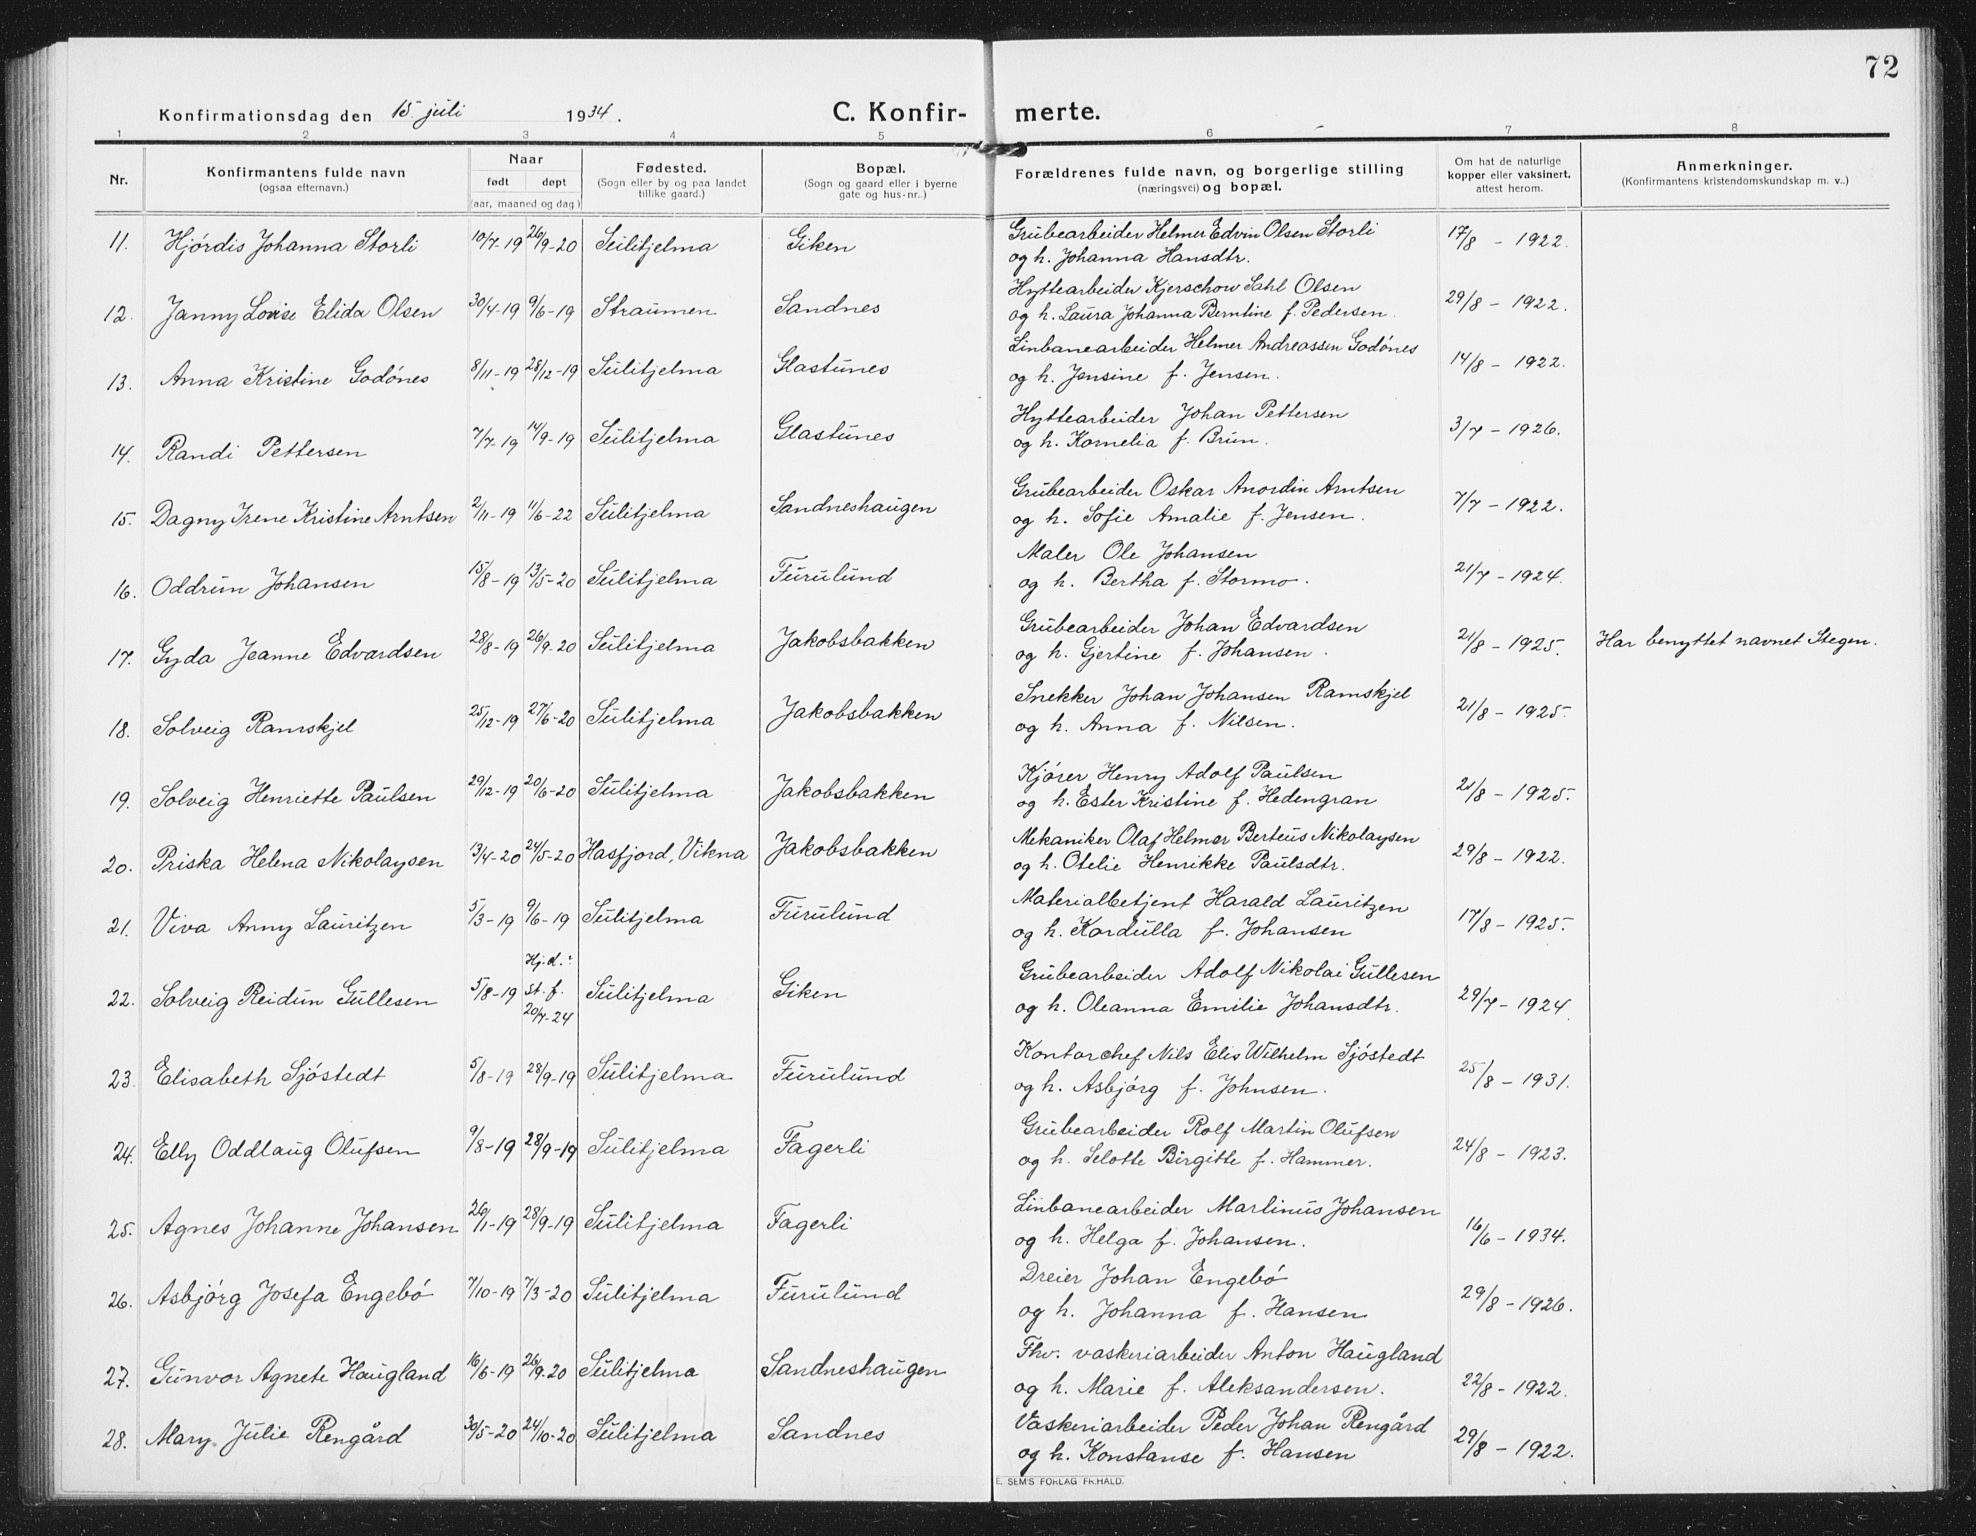 72
Konfirmationsdag den 15. juli 1934. C. Konfirmerte.
1 2 3 4 5 6 7 8
Nr. Konfirmantens fulde navn (ogsaa efternavn.) Naar født døpt (aar, maaned og dag) Fødested. (Sogn eller by og paa landet tillike gaard.) Bopæl. (Sogn og gaard eller i byerne gate og hus-nr..) Forældrenes fulde navn, og borgerlige stilling (næringsvei) og bopæl. Om hat de naturlige kopper eller vaksinert, attest herom. Anmerkninger. (Konfirmantens kristendomskundskap m. v..)
11. Hjórdis Johanna Storli 10/7-19 26/9-20 Sulitjelma Giken Grubearbeider Helmer Edvin Olsen Storli 17/8 - 1922.
og h. Johanna Hansdtr.
12. Janny Lovise Elida Olsen 30/4-19 9/6-19 Straumen Sandnes Hyttearbeider Kjerschow Sahl Olsen 29/8 - 1922.
og h. Laura Johanna Berntine f. Pedersen.
13. Anna Kristine Godónes 8/11-19 28/12-19 Sulitjelma Glastunes Linbanearbeider Helmer Andreassen Godónes 14/8 - 1922.
og h. Jensine f. Jensen.
14. Randi Pettersen 7/7-19 14/9-19 Sulitjelma Glastunes Hyttearbeider Johan Pettersen 3/7 - 1926.
og h. Kornelia f. Brun.
15. Dagny Irene Kristine Arntsen 2/11-19 11/6-22 Sulitjelma Sandneshaugen Grubearbeider Oskar Anordin Arntsen 7/7 - 1922.
og h. Sofie Amalie f. Jensen.
16. Oddrun Johansen 15/8-19 13/5-20 Sulitjelma Furulund Maler Ole Johansen 21/7 - 1924.
og h. Bertha f. Stormo.
17. Gyda Jeanne Edvardsen 28/8-19 26/9-20 Sulitjelma Jakobsbakken Grubearbeider Johan Edvardsen 21/8 - 1925. Har benyttet navnet Stegen.
og h. Gjertine f. Johansen.
18. Solveig Ramskjel 25/12-19 27/6-20 Sulitjelma Jakobsbakken Snekker Johan Johansen Ramskjel 21/8 - 1925.
og h. Anna f. Nilsen.
19. Solveig Henriette Paulsen 29/12-19 20/6-20 Sulitjelma Jakobsbakken Kjórer Henry Adolf Paulsen 21/8 - 1925.
og h. Ester Kristine f. Hedengran
20. Priska Helena Nikolaysen 13/4-20 24/5-20 Hasfjord, Vikna Jakobsbakken Mekaniker Olaf Helmer Berteus Nikolaysen 29/8 - 1922.
og h. Otelie Henrikke Paulsdtr.
21. Viva Anny Lauritzen 5/3-19 9/6-19 Sulitjelma Furulund Materialbetjent Harald Lauritzen 17/8 - 1925.
og h. Kordulla f. Johansen
22. Solveig Reidun Gullesen 5/8-19 Hj.d.: st. f. 20/7-24 Sulitjelma Giken Grubearbeider Adolf Nikolai Gullesen 29/7 - 1924.
og h. Oleanna Emilie Johansdtr.
23. Elisabeth Sjóstedt 5/8-19 28/9-19 Sulitjelma Furulund Kontorchef Nils Elis Wilhelm Sjóstedt 25/8 - 1931.
og h. Asbjórg f. Johnsen.
24. Elly Oddlaug Olufsen 9/8-19 28/9-19 Sulitjelma Fagerli Grubearbeider Rolf Martin Olufsen 24/8 - 1923.
og h. Selotte Birgitte f. Hammer.
25. Agnes Johanne Johansen 26/1-19 28/9-19 Sulitjelma Fagerli Linbanearbeider Martinus Johansen 16/6 - 1934.
og h. Helga f. Johansen.
26. Asbjórg Josefa Engebó 7/10-19 7/3-20 Sulitjelma Furulund Dreier Johan Engebó 29/8 - 1926.
og h. Johanna f. Hansen
27. Gunvor Agnete Haugland 16/6-19 26/9-20 Sulitjelma Sandneshaugen Fhv. vaskeriarbeider Anton Haugland 22/8 - 1922.
og h. Marie f. Aleksandersen.
28. Mary Julie Rengård 30/5-20 24/10-20 Sulitjelma Sandnes Vaskeriarbeider Peder Johan Rengård 29/8 - 1922.
og h. Konstanse f. Hansen
E. SEM'S FORLAG FR.HALD.